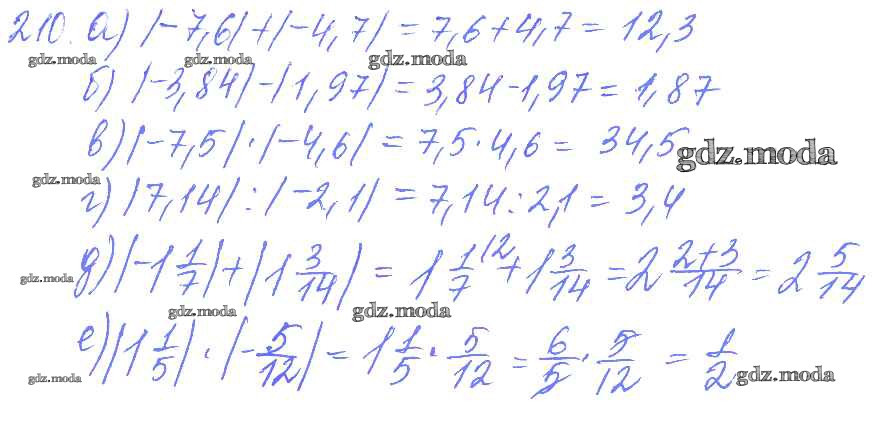 210. а) |-7,6|+|-4,7| = 7,6+4,7 = 12,3
gdz.moda gdz.moda gdz.moda
б) |-3,84|-|1,97| = 3,84-1,97 = 1,87
в) |-7,5|·|-4,6| = 7,5·4,6 = 34,5
gdz.moda
gdz.moda
г) |7,14|:|-2,1| = 7,14:2,1 = 3,4
д) |-1 1/7|+|1 3/14| = 1 1/7 |2 + 1 3/14 = 2 2+3/14 = 2 5/14
gdz.moda
gdz.moda gdz.moda
е) |1 1/5|·|-5/12| = 1 1/5 · 5/12 = 6/5 · 5/12 = 1/2
gdz.moda gdz.moda